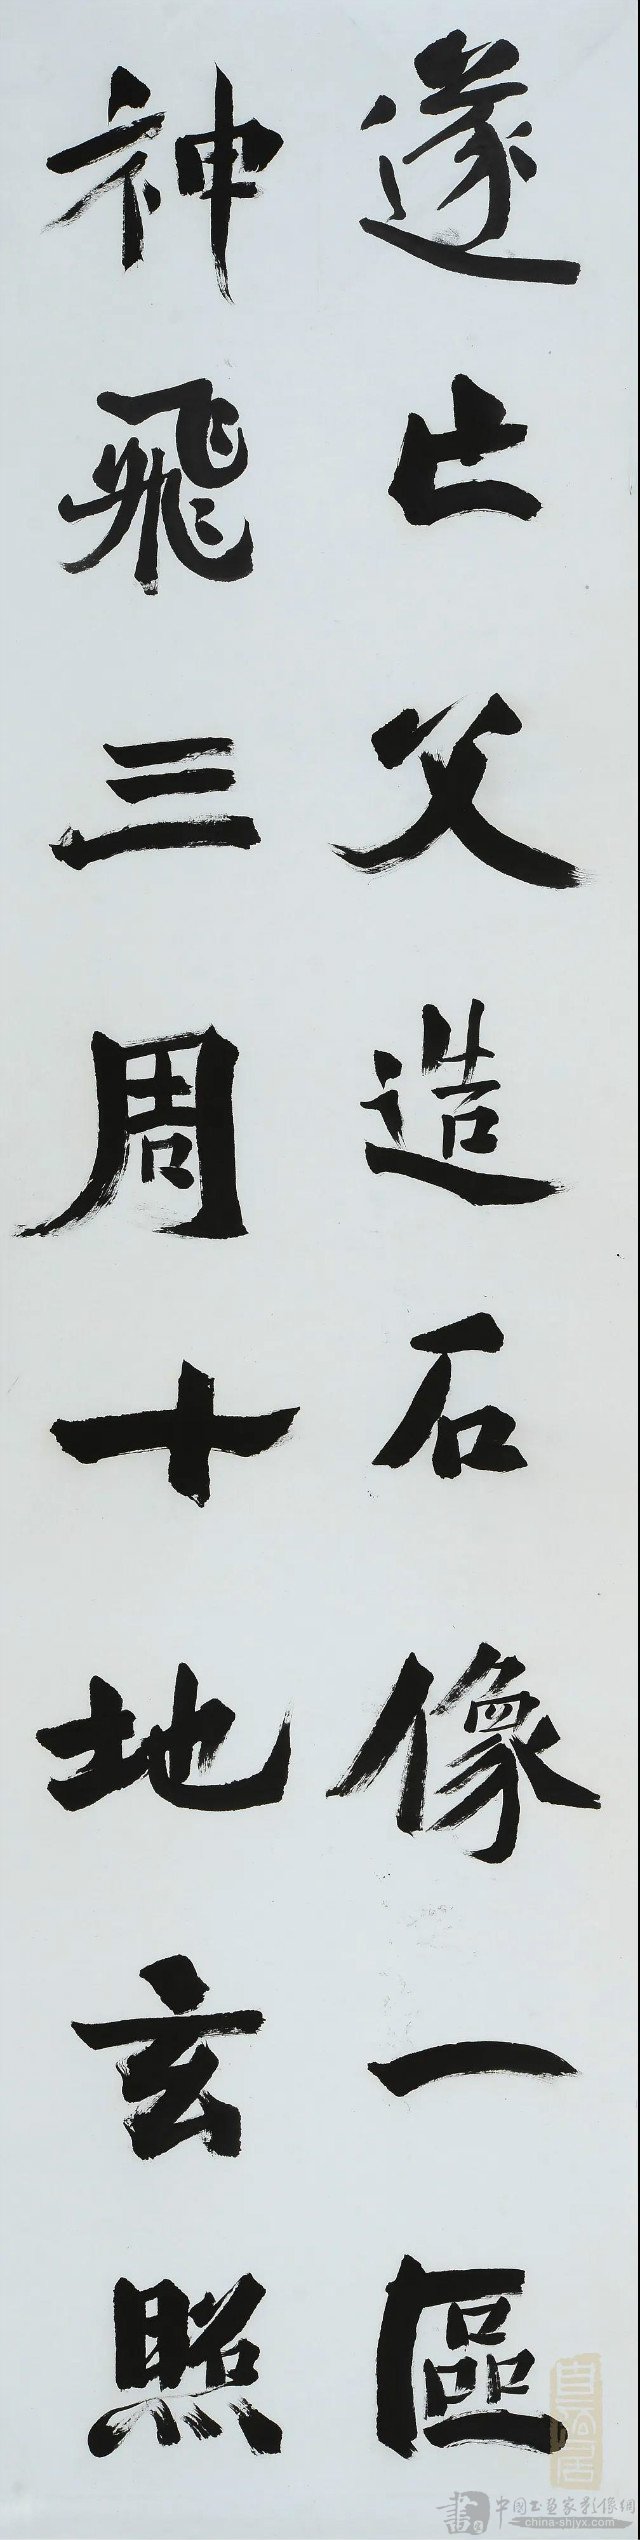 遂亡父造石像一區
神飛三周十地玄照
中国书画家影像網
china-shjyx.com